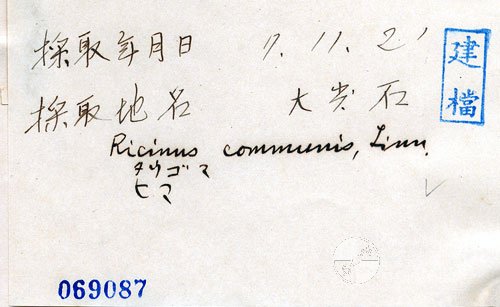 採取年月日 7.11.21
採取地名 大尖石
建檔
Ricinus communis, Linn.
タウゴマ
ヒマ
069087